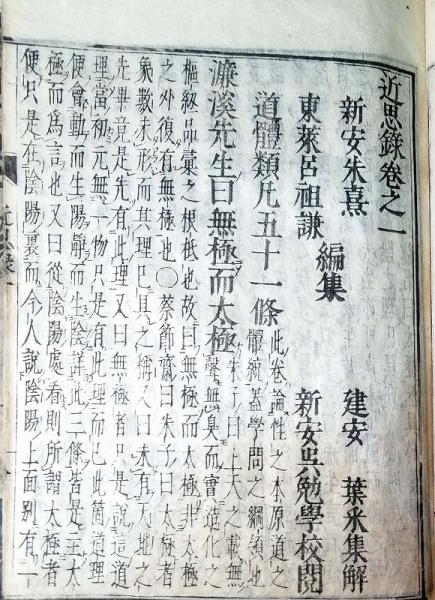 近思錄卷之一
新安朱熹
建安 葉采集解
編集
東萊呂祖謙
新安吳勉學校閱
道體類凡五十一條
此卷論性之本原道之
體統蓋學問之綱領也
濂溪先生曰無極而太極
朱子曰上天之載無
聲無臭而實造化之
樞紐品彙之根柢也故曰無極而太極非太極
之外復有無極也○蔡節齋曰朱子曰太極者
象數未形而其理已具之稱又曰未有天地之
先畢竟是先有此理又曰無極者只是說這道
理當初元無一物只是有此理而已此箇道理
便會動而生陽靜而生陰詳此三條皆是主太
極而為言也又曰從陰陽處看則所謂太極者
便只是在陰陽裏而今人說陰陽上面別有一